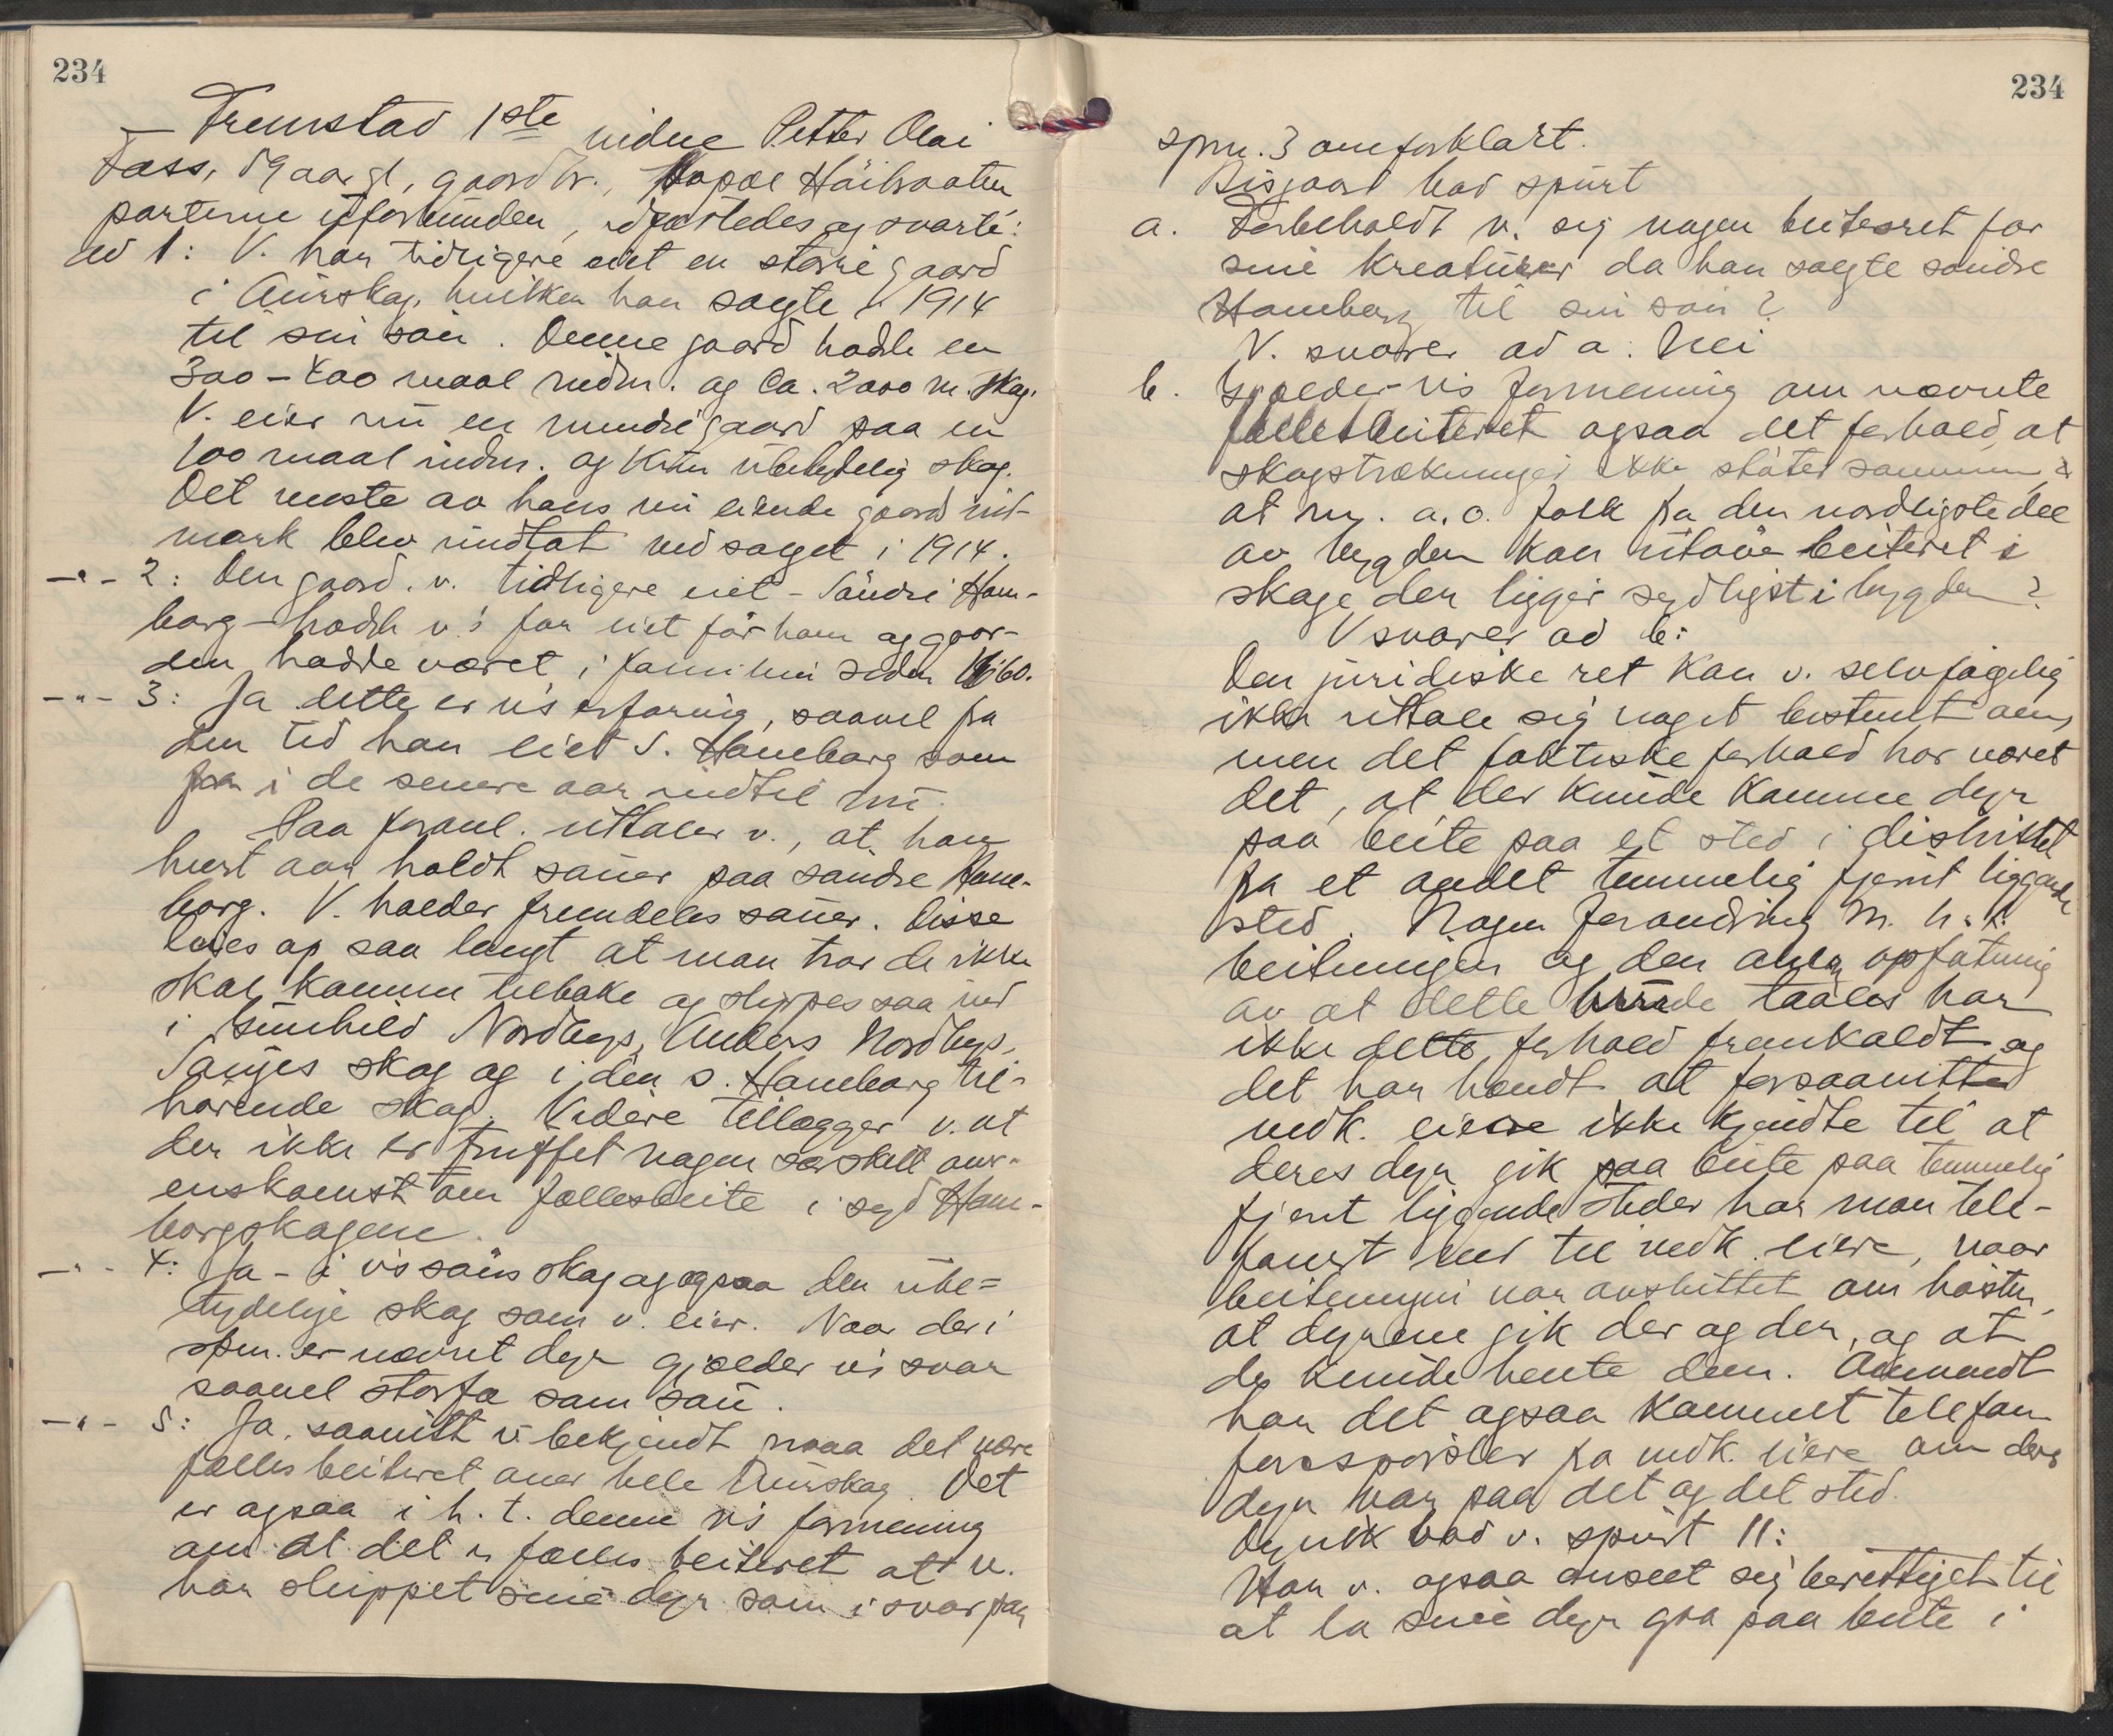 234
Fremstod 1ste vidne Petter Olai
Foss, 59 aar gl, gaardbr., Høibraaten
parterne uforbunden, edfæstedes og svarte:
ad 1: V. har tidligere eiet en større gaard
i Aurskog, hvilken han solgte i 1914
til sin søn. Denne gaard hadde en
300-400 maal indm. og ca. 2000 m. skog.
V. eier nu en mindre gaard paa en
100 maal indm. og kun ubetydelig skog.
Det meste av hans nu eiende gaards ut-
mark blev undtat ved salget i 1914.
-"- 2: Den gaard v. tidligere eiet - Søndre Ham-
borg - hadde v's far eiet før ham og gaar-
den hadde været i familien siden 1660.
-"- 3: Ja dette er v's erfaring, saavel fra
den tid han eiet S. Hamborg som
fra i de senere aar indtil nu.
Paa foranl. uttaler v., at han
hvert aar holdt sauer paa søndre Ham-
borg. V. holder fremdeles sauer. Disse
leies op saa langt at man tror de ikke
skal komme tilbake og slippes saa ind
i Gunhild Nordbys, Anders Nordbys,
skog og i den s. Hamborg til-
hørende skog. Videre tillægger v. at
der ikke er truffet nogen særskilt over-
enskomst om fællesbeite i syd Ham-
borgskogene.
-"- 4: Ja - i v's søns skog og ogsaa den ube=
tydelige skog som v. eier. Naar der i
spm. er nævnt dyr gjælder v's svar
saavel storfæ som sau.
-"- 5: Ja, saavidt v. bekjendt maa det være
fælles beiteret over hele Aurskog. Det
er ogsaa i h. t. denne v's formening
om at det er fælles beiteret at v.
har sluppet sine dyr som i svar paa
234
spm. 3 omforklart.
Bisgaard bad spurt
a. Forbeholdt v. sig nogen beiteret for
sine kreaturer da han solgte søndre
Hamborg til sin søn?
V. svarer ad a: Nei
b. Gjælder v's formening om nævnte
fællesbeiteret ogsaa det forhold, at
skogstrækninger ikke støter sammen, &
at m. a. o. folk fra den nordligste del
av bygden kan utøve beiteret i
skoge der ligger sydligst i bygden?
V svarer ad b:
Den juridiske ret kan v. selvfølgelig
ikke uttale sig noget bestemt om,
men det faktiske forhold har været
det, at der kunde komme dyr
paa beite paa et sted i distriktet
fra et andet temmelig fjernt liggende
sted. Nogen forandring m. h. t.
beitningen og den opfatning
av at dette burde taales har
ikke dette forhold fremkaldt og
det har hændt at forsaavidt
vedk. eiere ikke kjendte til at
deres dyr gik paa beite paa temmelig
fjernt liggende steder har man tele-
fonert ned til vedk. eiere, naar
beitningen var avsluttet om høsten,
at dyrene gik der og der, og at
de kunde hente dem. Omvendt
har det ogsaa kommet telefon
forespørsler fra vedk. eiere om deres
dyr var paa det og det sted.
bad v. spurt 11:
Har v. ogsaa anseet sig berettiget til
at la sine dyr gaa paa beite i